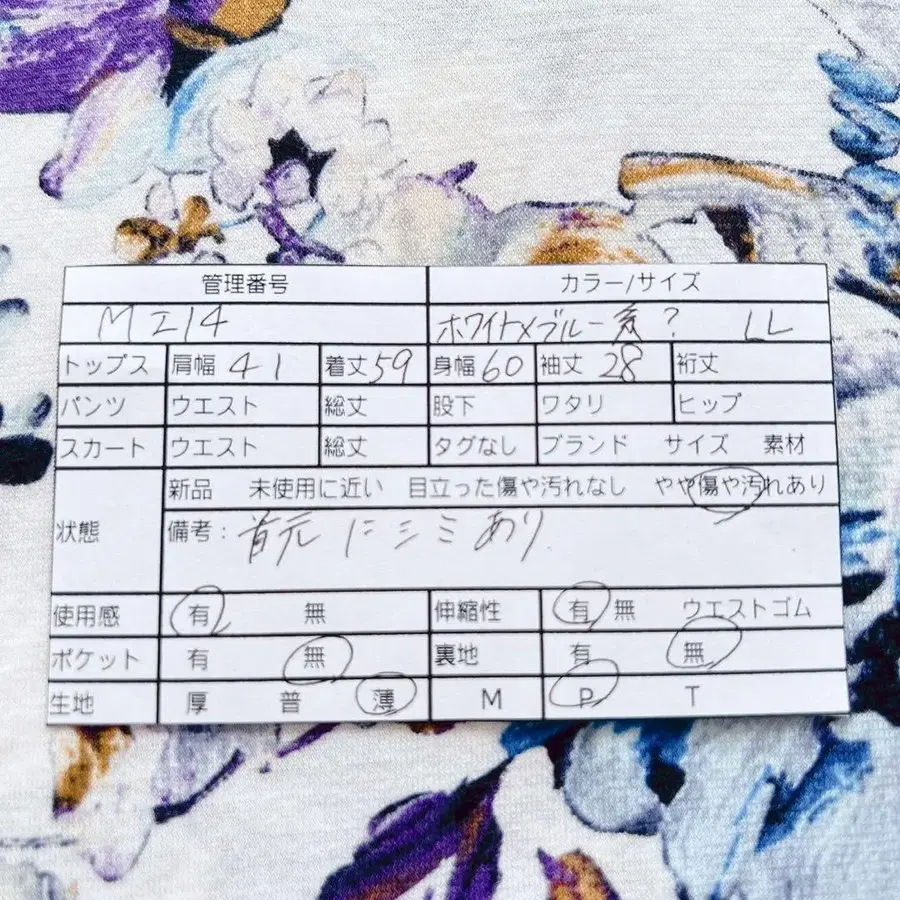 管理番号 カラー/サイズ
MI14 ホワイト×ブルー系? LL
トップス 肩幅 41 着丈59 身幅60 袖丈 28 裄丈
パンツ ウエスト 総丈 股下 ワタリ ヒップ
スカート ウエスト 総丈 タグなし ブランド サイズ 素材
状態 新品 未使用に近い 目立った傷や汚れなし やや傷や汚れあり
備考: 首元にシミあり
使用感 有 無 伸縮性 有 無 ウエストゴム
ポケット 有 無 裏地 有 無
生地 厚 普 薄 M P T